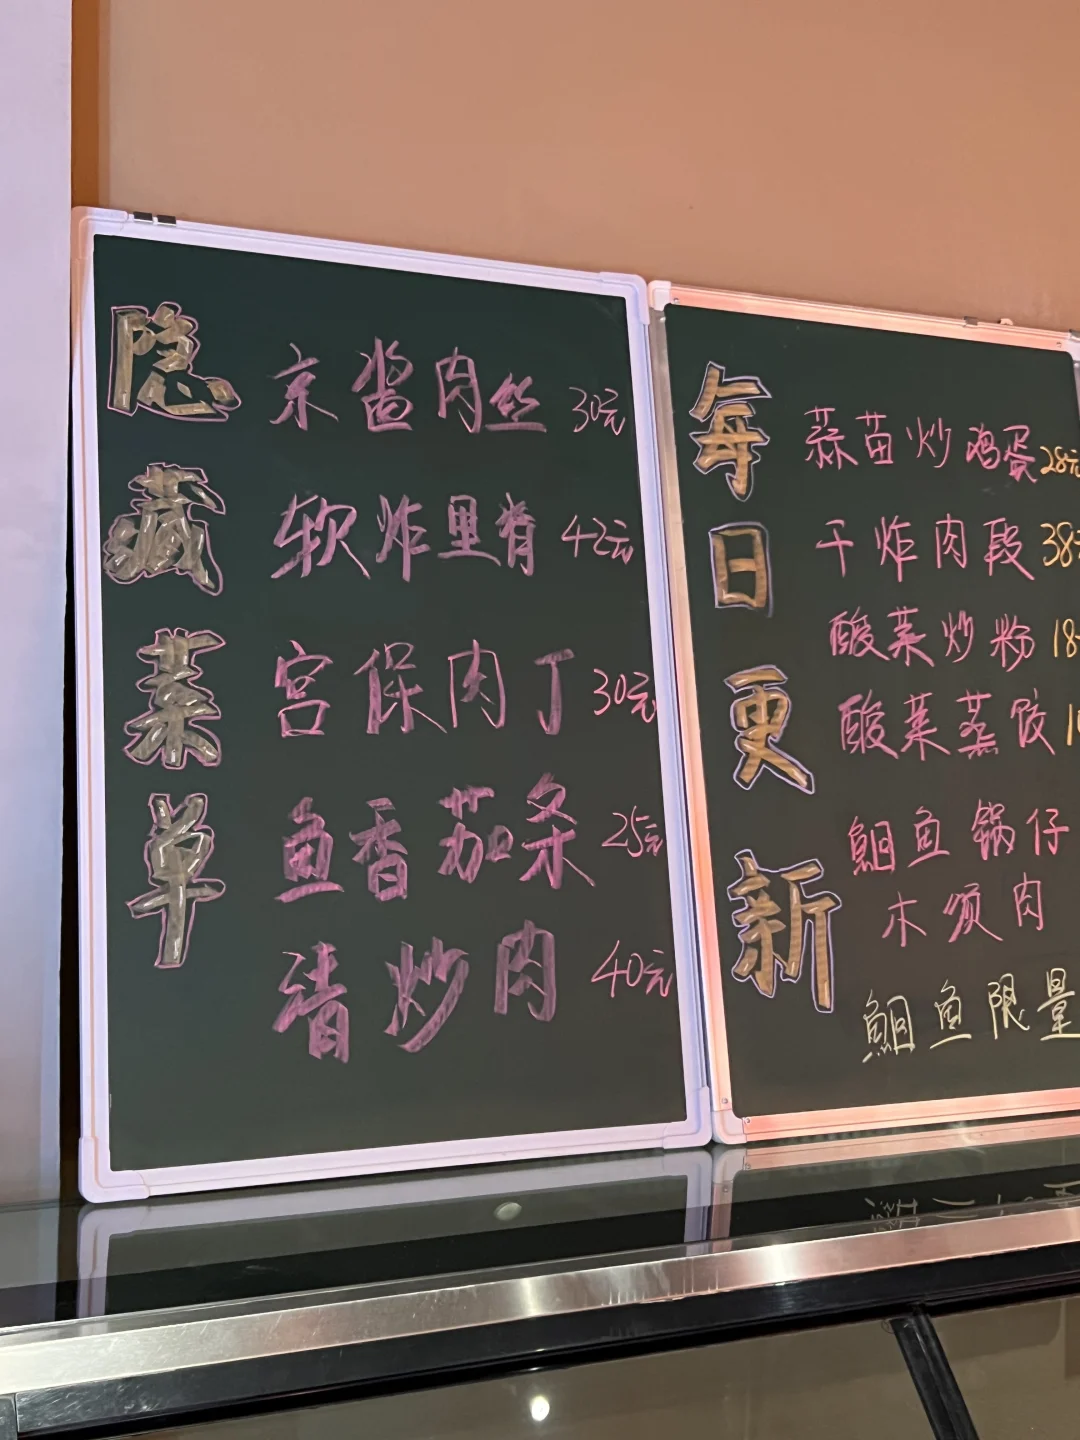 隐藏菜单
京酱肉丝 30元
软炸里脊 42元
宫保肉丁 30元
鱼香茄条 25元
清炒肉 40元
每日更新
蒜苗炒鸡蛋 28元
干炸肉段 38元
酸菜炒粉 18
酸菜蒸饺 1
鮰鱼锅仔
木须肉
鮰鱼限量